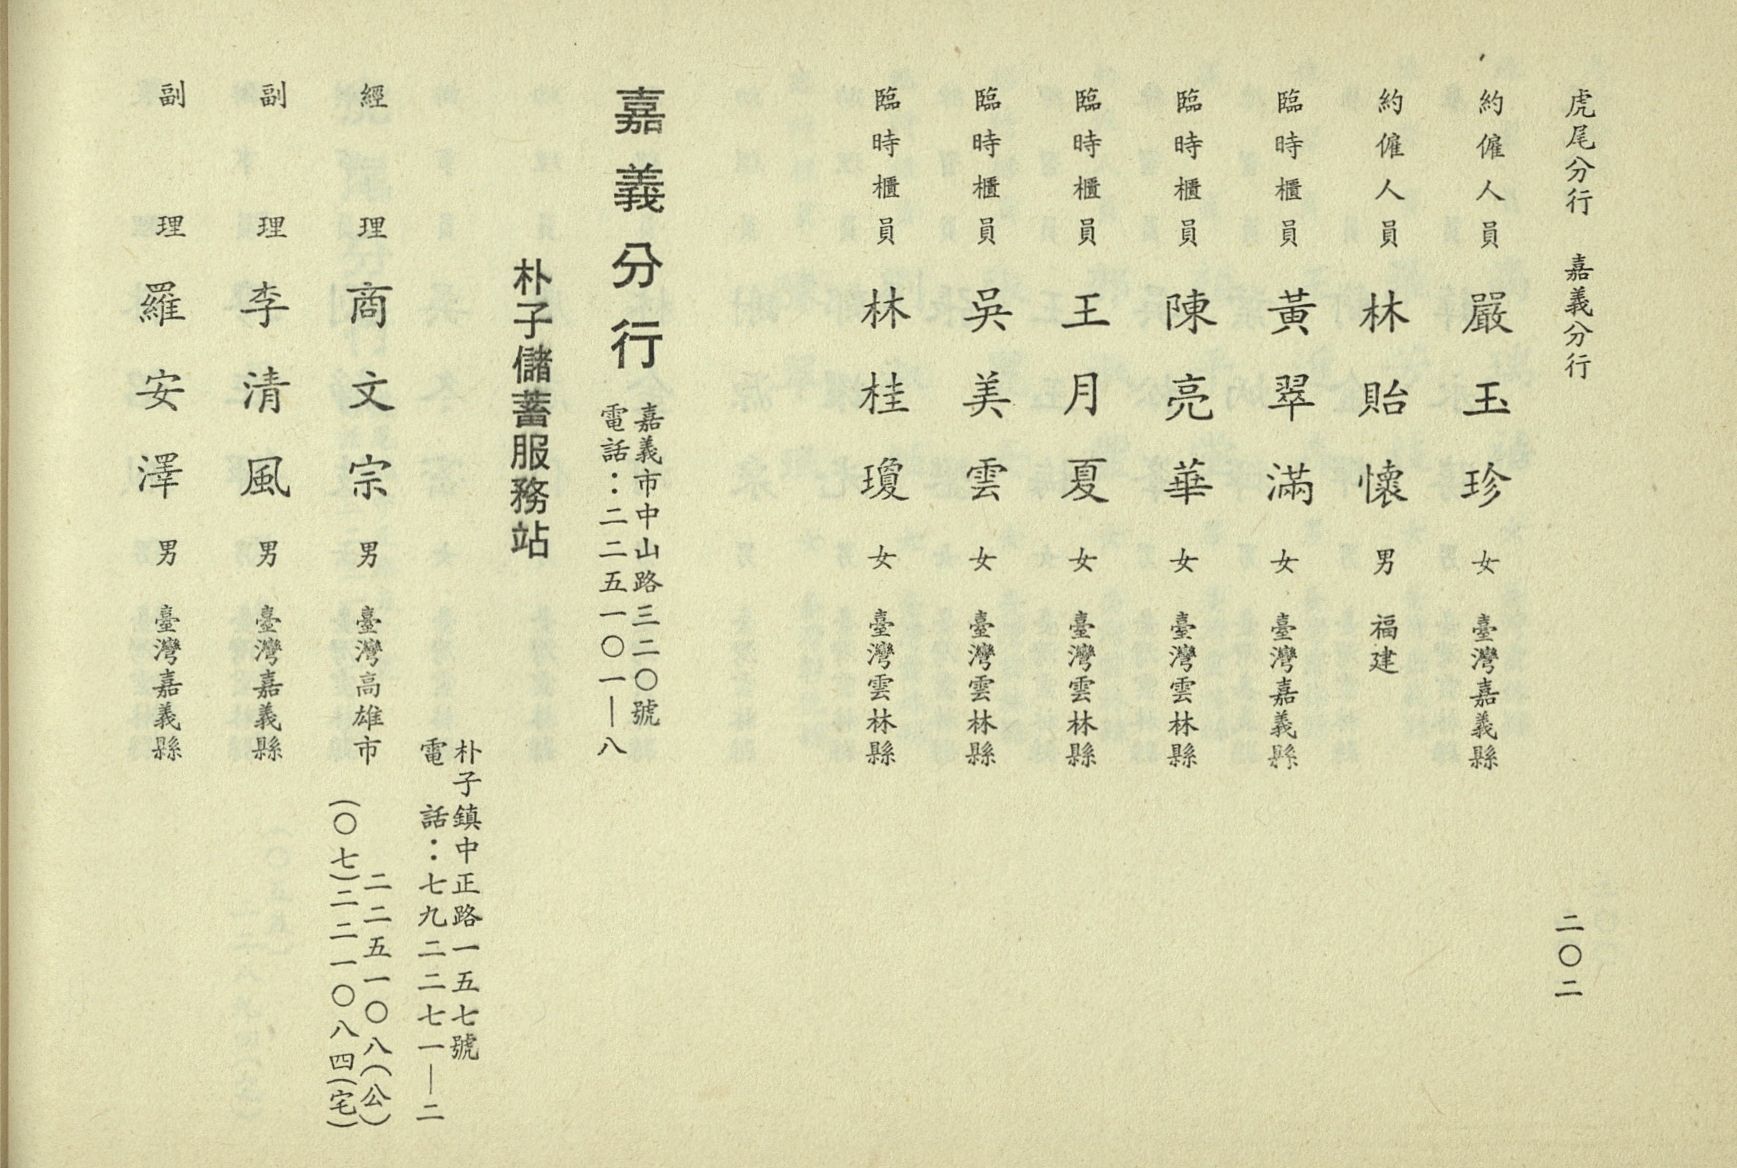 虎尾分行　嘉義分行
二〇二
約僱人員　嚴玉珍　女　臺灣嘉義縣
約僱人員　林貽懷　男　福建
臨時櫃員　黃翠滿　女　臺灣嘉義縣
臨時櫃員　陳亮華　女　臺灣雲林縣
臨時櫃員　王月夏　女　臺灣雲林縣
臨時櫃員　吳美雲　女　臺灣雲林縣
臨時櫃員　林桂瓊　女　臺灣雲林縣
嘉義分行
嘉義市中山路三二〇號
電話：二二五一〇一—八
朴子儲蓄服務站
朴子鎮中正路一五七號
電話：七九二二七一—二
經理　商文宗　男　臺灣高雄市
二二五一〇八(公)
(〇七)二二一〇八四(宅)
副理　李清風　男　臺灣嘉義縣
副理　羅安澤　男　臺灣嘉義縣